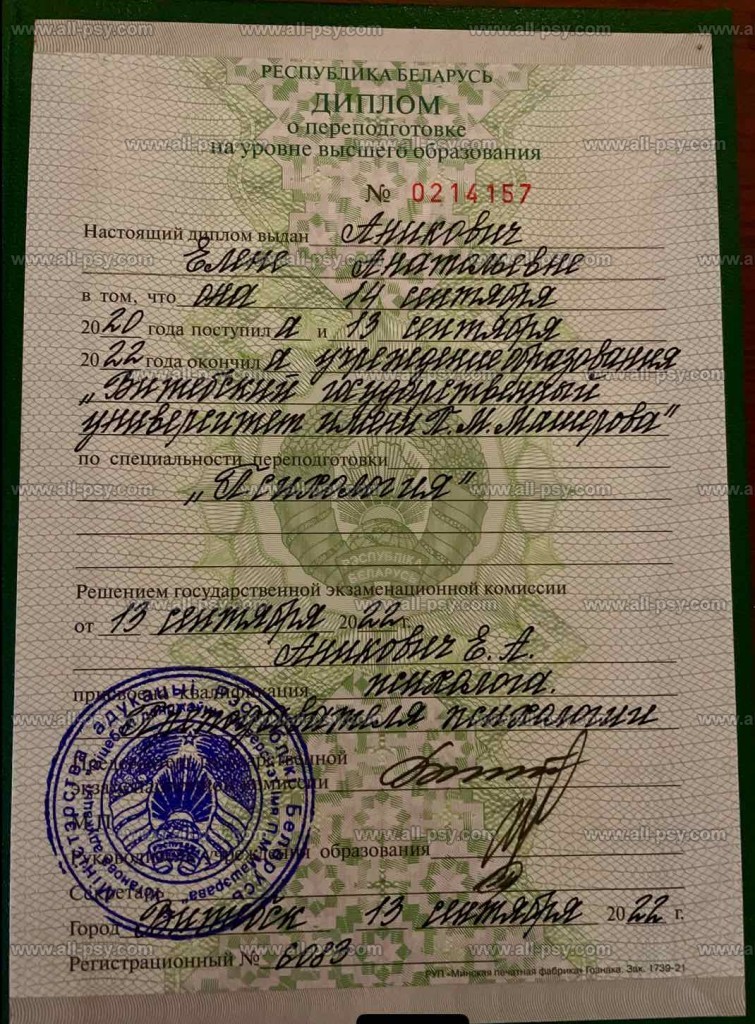 РЕСПУБЛИКА БЕЛАРУСЬ
ДИПЛОМ
о переподготовке
на уровне высшего образования
№ 0214157
Настоящий диплом выдан Аникович
Елене Анатольевне
в том, что она 14 сентября
2020 года поступила и 13 сентября
2022 года окончила учреждение образования
„Витебский государственный
университет имени П.М.Машерова"
по специальности переподготовки
„Психология"
РЭСПУБЛІКА
БЕЛАРУСЬ
Решением государственной экзаменационной комиссии
от 13 сентября 2022 г.
Аникович Е. А.
присвоена квалификация психолога.
Преподавателя психологии
Председатель государственной
экзаменационной комиссии
М.П.
Руководитель учреждения образования
Секретарь
Город Витебск 13 сентября 2022 г.
Регистрационный № 6083
РУП «Минская печатная фабрика» Гознака. Зак. 1739-21
Міністэрства адукацыі Рэспублікі Беларусь
www.all-psy.com